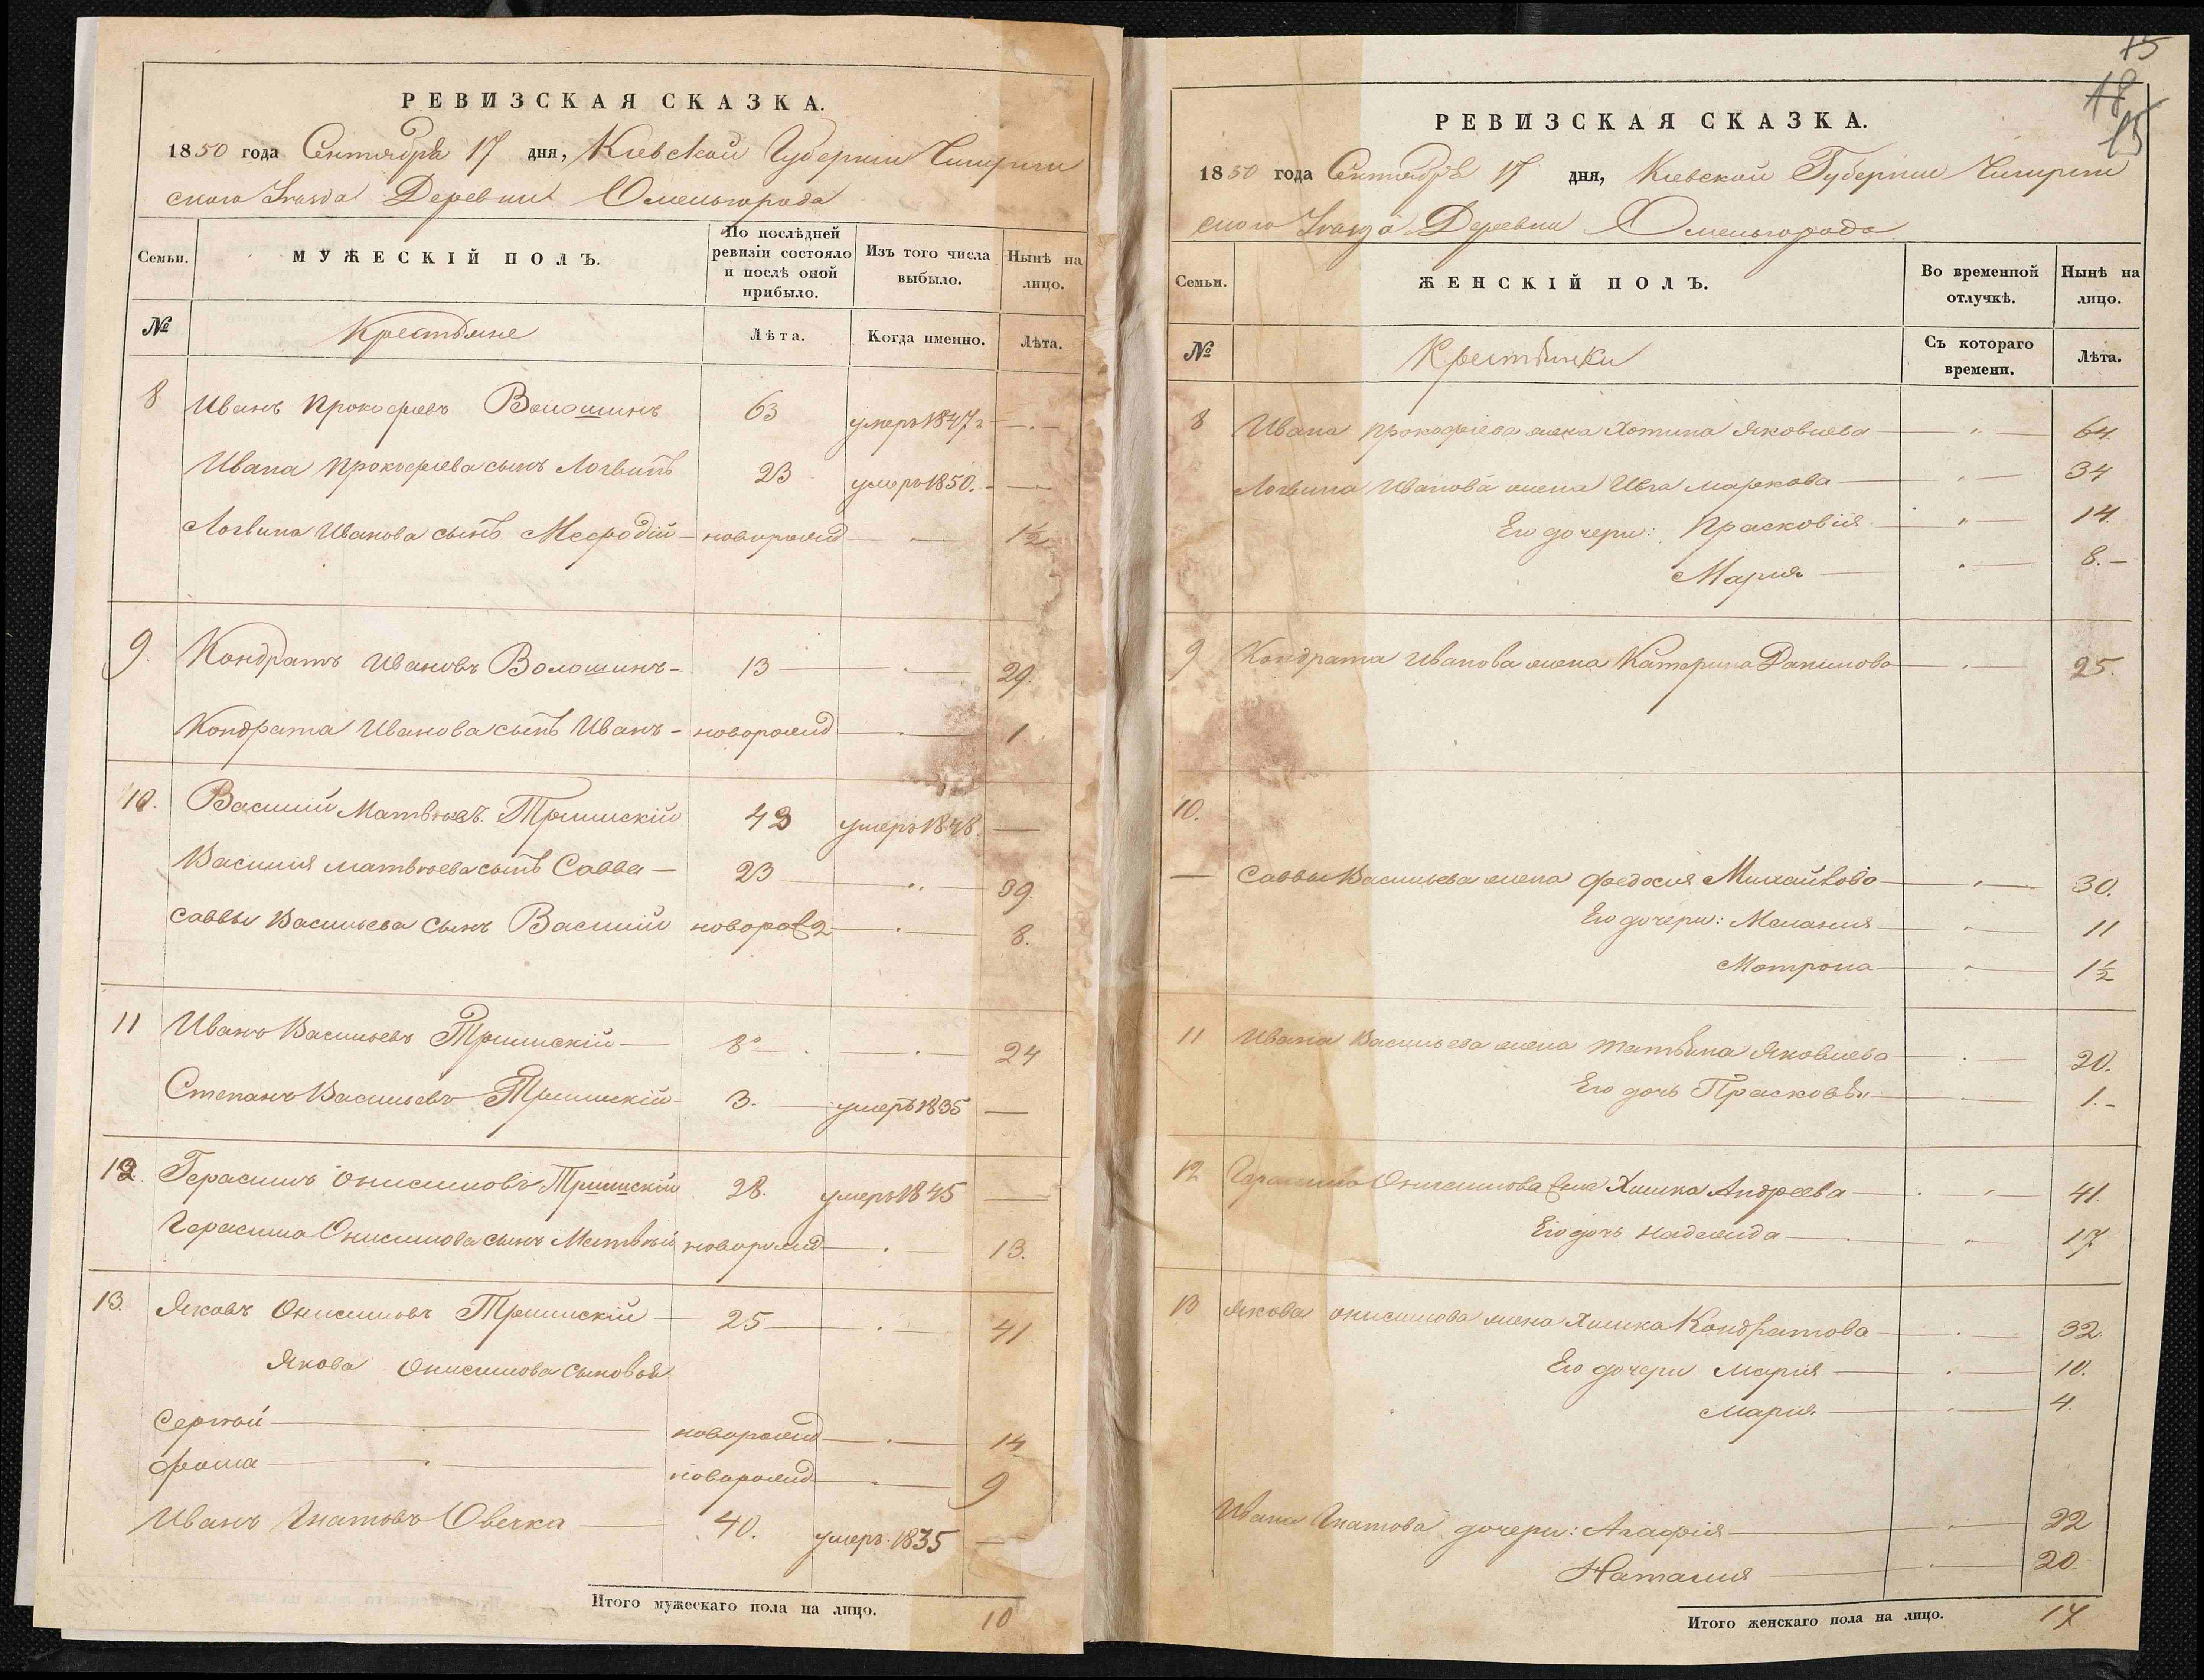 РЕВИЗСКАЯ СКАЗКА.
1850 года Сентября 17 дня, Кіевской Губерніи Чигирин
скаго Уѣзда Деревни Омельгорода
Семьи. МУЖЕСКІЙ ПОЛЪ. По послѣдней ревизіи состояло и послѣ оной прибыло. Изъ того числа выбыло. Нынѣ на лицо.
№ Крестьяне Лѣта. Когда именно. Лѣта.
8 Иванъ Прокофіевъ Волошинъ 63 умеръ 1847 г —
Ивана Прокофіева сынъ Логвинъ 23 умеръ 1850. —
Логвина Иванова сынъ Мефодій — новорожд — 1½
9. Кондратъ Ивановъ Волошинъ — 13 — 29.
Кондрата Иванова сынъ Иванъ — новорожд — 1.
10. Василій Матвѣевъ Тришскій 43 умеръ 1848. —
Василія Матвѣева сынъ Савва — 23 — 39.
Саввы Васильева сынъ Василій новорож — 8.
11 Иванъ Васильевъ Тришскій — 8 — 24
Степанъ Васильевъ Тришскій 3. — умеръ 1835 —
12. Герасимъ Онисимовъ Тришскій 28. умеръ 1845 —
Герасима Онисимова сынъ Матвѣй новорожд — 13.
13. Яковъ Онисимовъ Тришскій — 25 — 41
Якова Онисимова сыновья
Сергѣй — новорожд — 14
Фома — новорожд — 9
Иванъ Игнатовъ Овечка — 40. умеръ 1835 —
Итого мужескаго пола на лицо. 10
15
18
15
РЕВИЗСКАЯ СКАЗКА.
1850 года Сентября 17 дня, Кіевской Губерніи Чигирин
скаго Уѣзда Деревни Омельгорода
Семьи. ЖЕНСКІЙ ПОЛЪ. Во временной отлучкѣ. Нынѣ на лицо.
№ Крестьянки Съ котораго времени. Лѣта.
8 Ивана Прокофіева жена Хотина Яковлева — 64.
Логвина Иванова жена Ивга Маркова — 34
Его дочери: Прасковія — 14.
Марія — 8.
9 Кондрата Иванова жена Катерина Данилова — 25.
10.
— Саввы Васильева жена Федосія Михайлова — 30.
Его дочери: Меланія — 11
Мотрона — 1½
11 Ивана Васильева жена Татьяна Яковлева — 20.
Его дочь Прасковья — 1.
12 Герасима Онисимова жена Химка Андреева — 41.
Его дочь Надежда — 17
13 Якова Онисимова жена Химка Кондратова — 32.
Его дочери Марія — 10.
Марія — 4.
Ивана Игнатова дочери: Агафія — 22
Наталія — 20.
Итого женскаго пола на лицо. 17